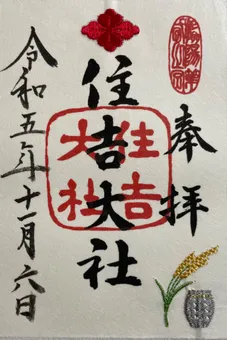 奉拝
住吉大社
住吉大社
令和五年十一月六日